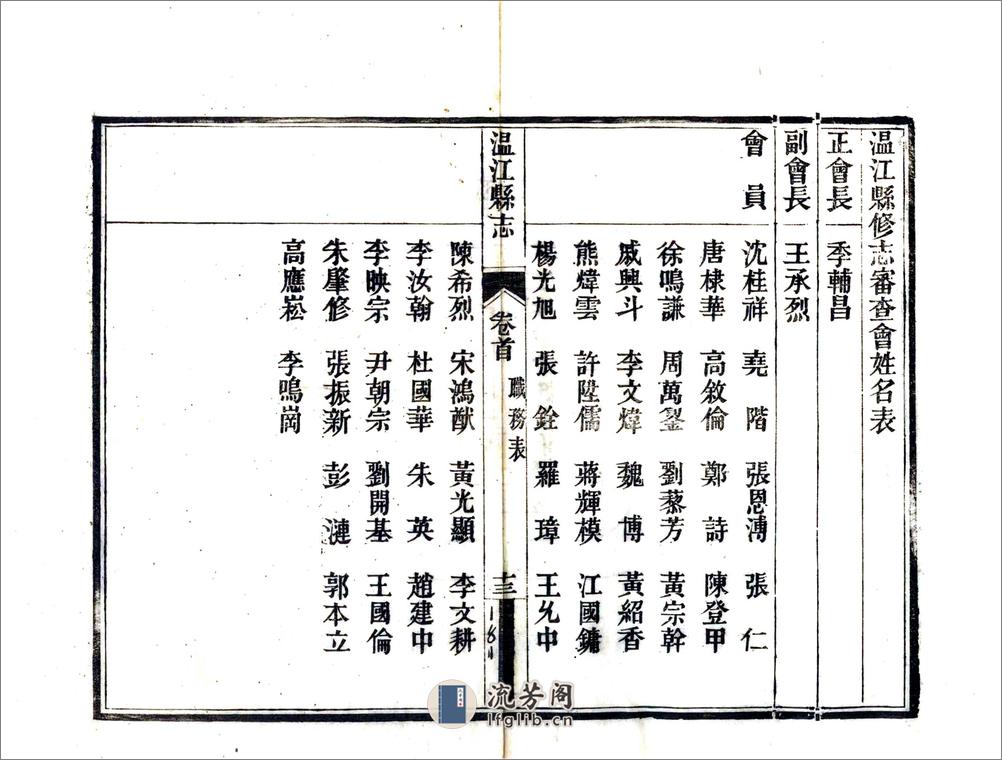 温江縣修志審查會姓名表
正會長 季輔昌
副會長 王承烈
會員 沈桂祥 堯階 張恩溥 張仁
唐棣華 高敘倫 鄭詩 陳登甲
徐鳴謙 周萬鋆 劉藜芳 黃宗幹
戚興斗 李文煒 魏博 黃紹香
熊煒雲 許陞儒 蔣輝模 江國鏞
楊光旭 張銓 羅璋 王允中
温江縣志 卷首 職務表 十三
181
陳希烈 宋鴻猷 黃光顯 李文耕
李汝翰 杜國華 朱英 趙建中
李映宗 尹朝宗 劉開基 王國倫
朱肇修 張振新 彭漣 郭本立
高應崧 李鳴崗
流芳阁
lfglib.cn